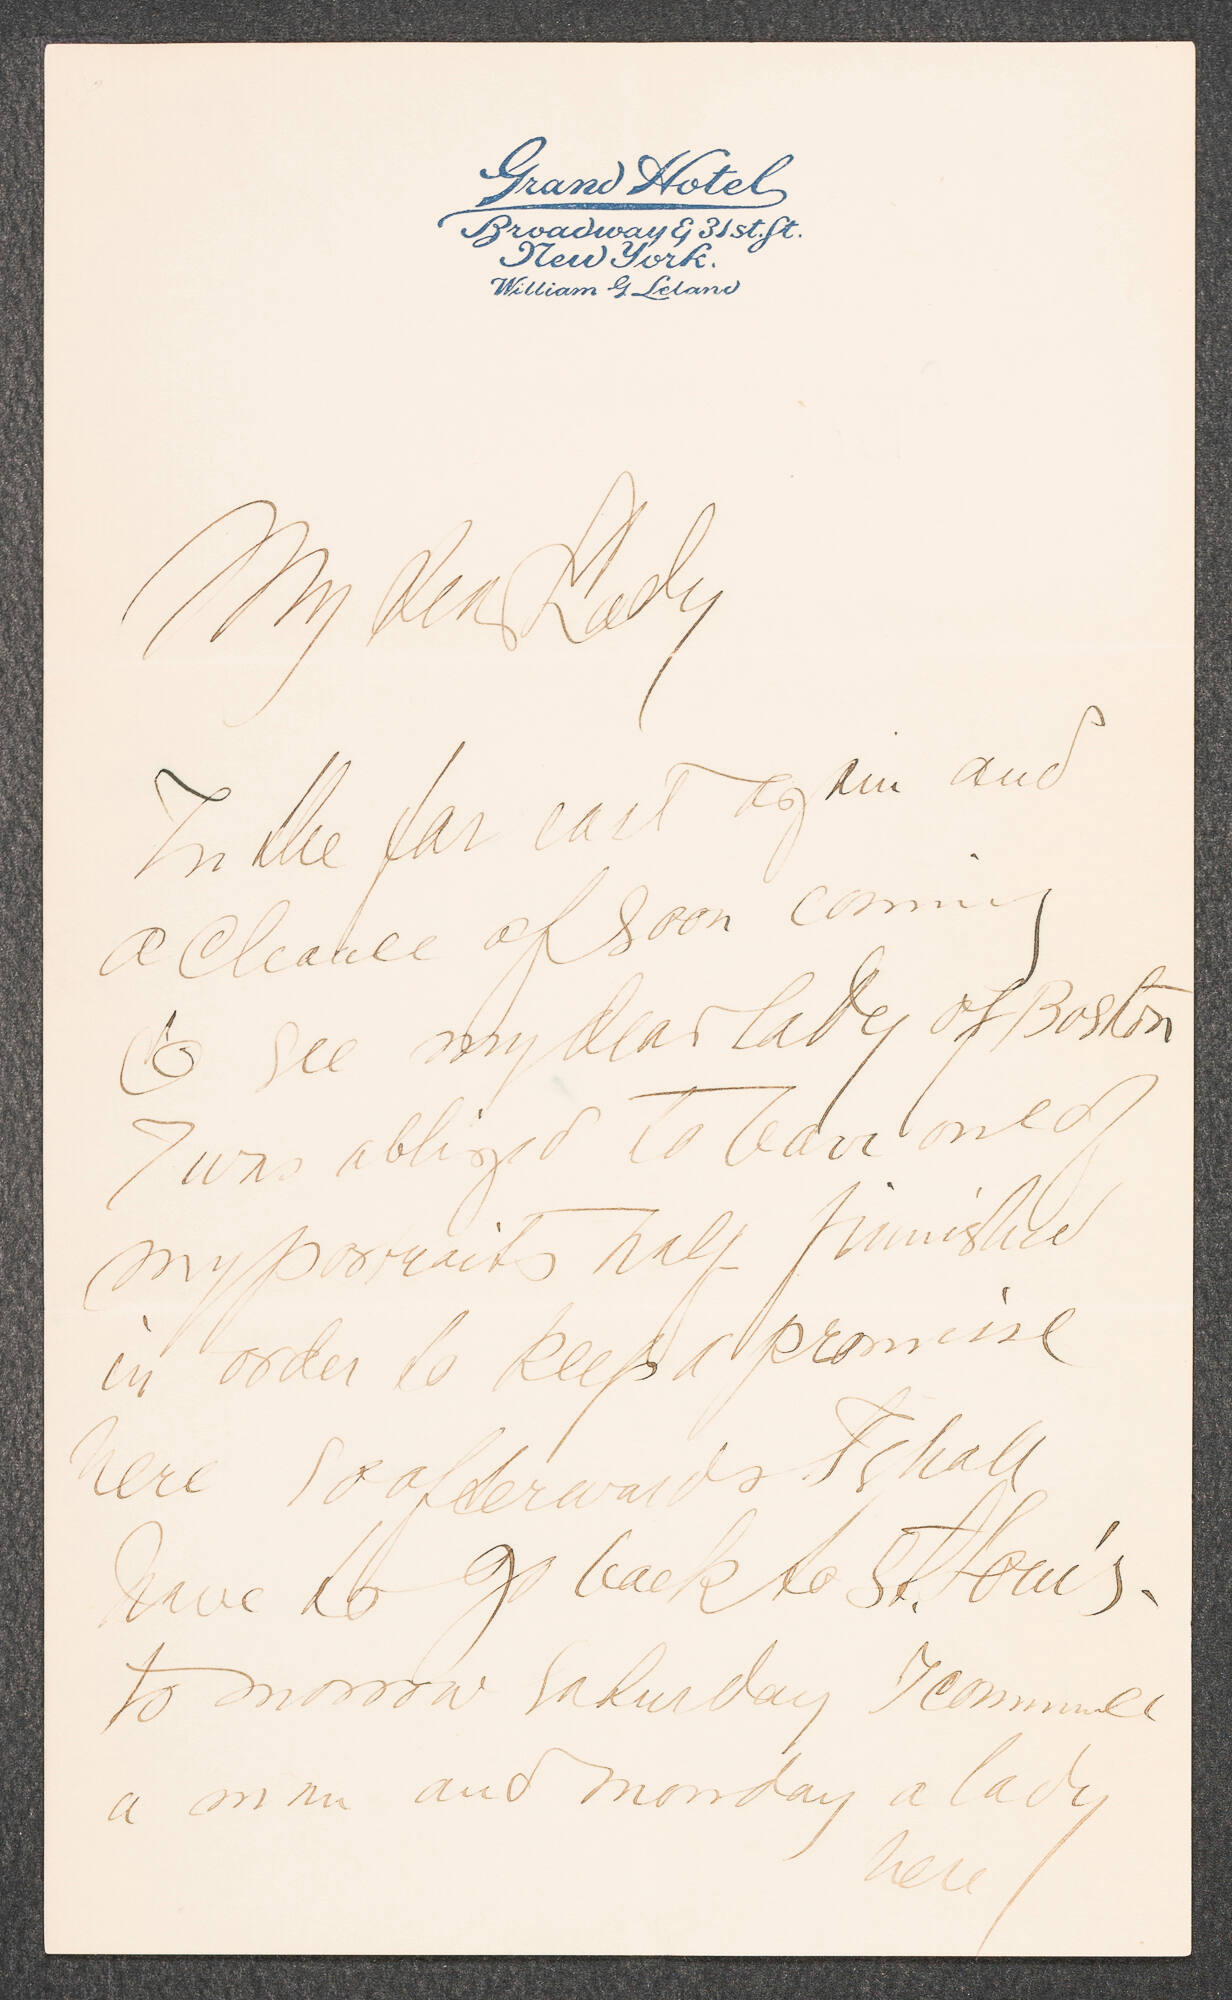 Grand Hotel
Broadway & 31st. St.
New York.
William G Leland
My dear Lady
In the far east again and
a chance of soon coming
to see my dear lady of Boston
I was obliged to leave one of
my portraits half finnished
in order to keep a promise
here so afterwards I shall
have to go back to St. Louis.
to morrow Saturday I commence
a man and monday a lady
here